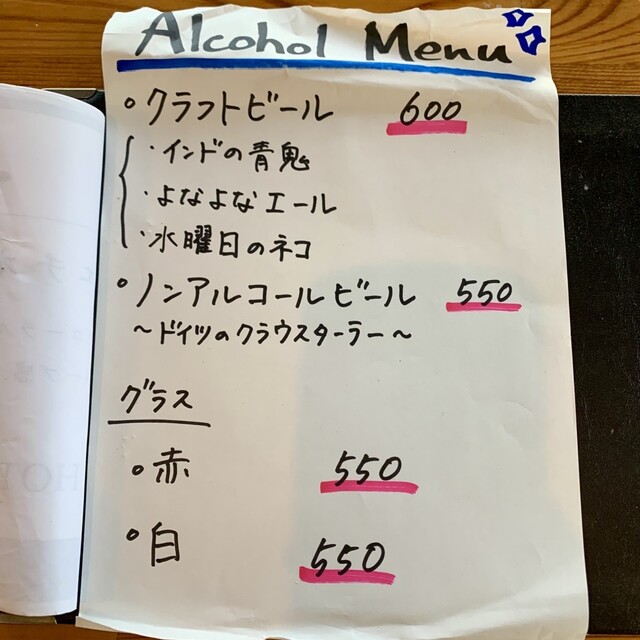 Alcohol Menu
・クラフトビール 600
・インドの青鬼
・よなよなエール
・水曜日のネコ
・ノンアルコールビール 550
〜ドイツのクラウスターラー〜
グラス
・赤 550
・白 550